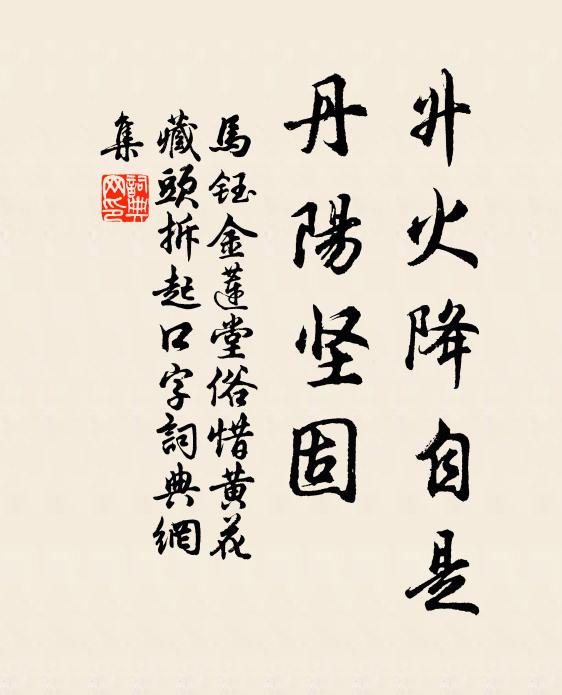 升火降自是
丹陽坚固
馬鈺金蓮堂俗惜黄花
藏頭拆起口字詞典網
集
詞典
网印